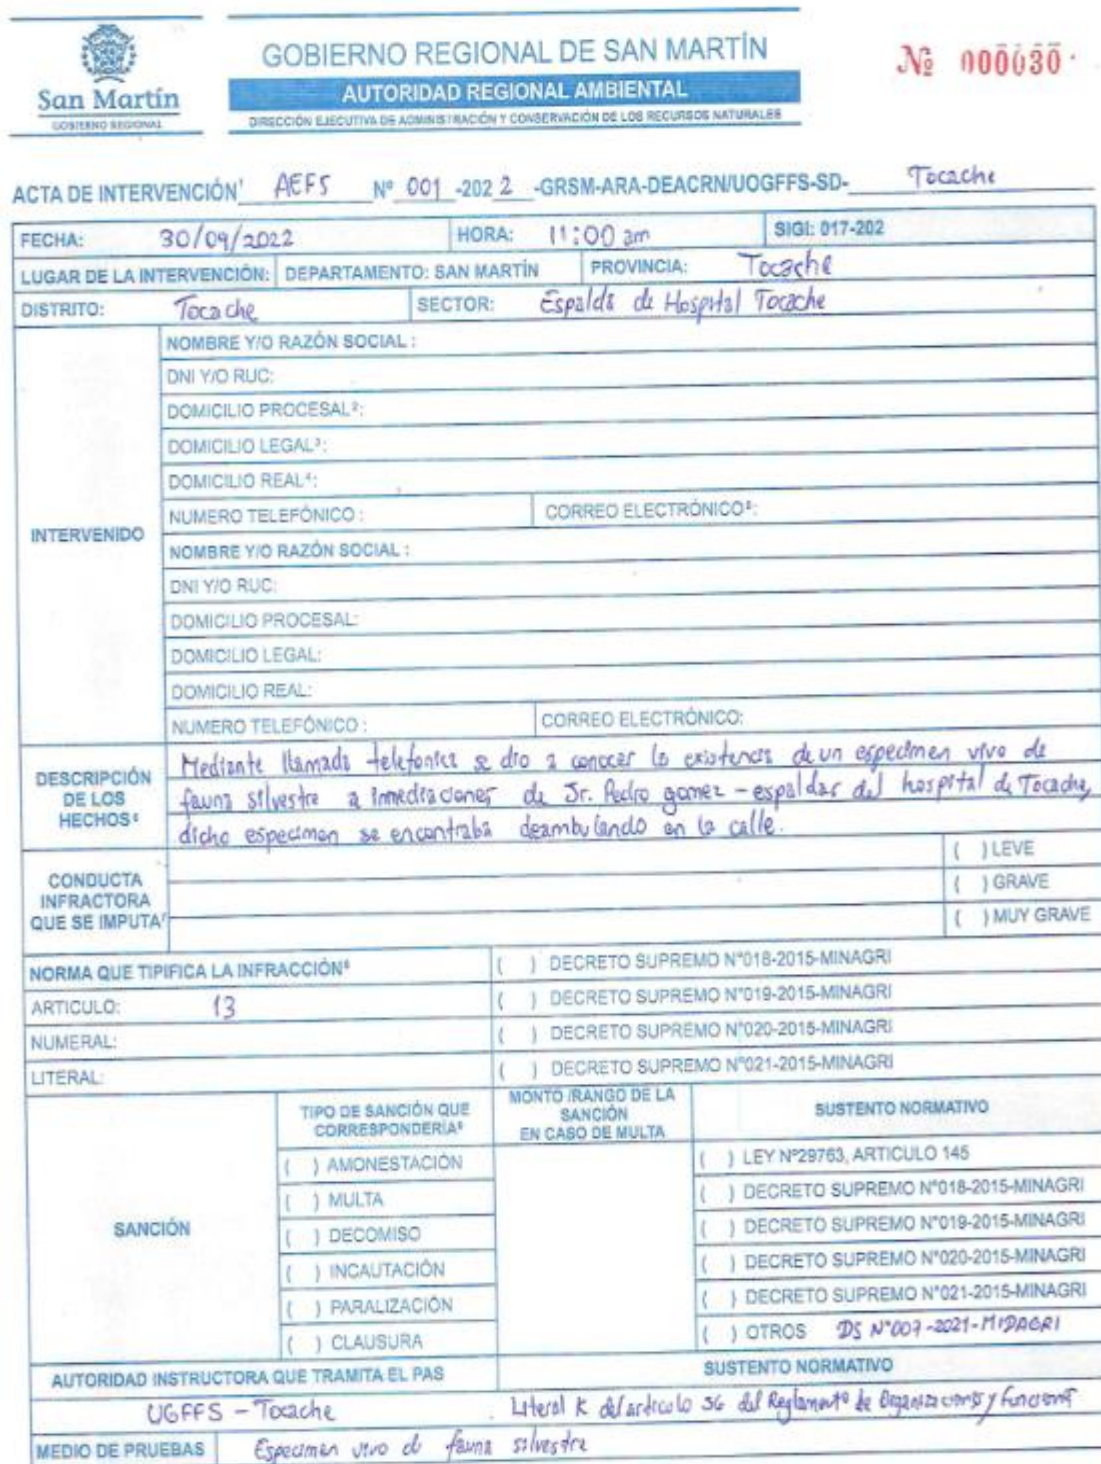 San Martín
GOBIERNO REGIONAL
GOBIERNO REGIONAL DE SAN MARTÍN
AUTORIDAD REGIONAL AMBIENTAL
DIRECCIÓN EJECUTIVA DE ADMINISTRACIÓN Y CONSERVACIÓN DE LOS RECURSOS NATURALES
№ 000030
ACTA DE INTERVENCIÓN¹ AEFS Nº 001 -2022 -GRSM-ARA-DEACRN/UOGFFS-SD- Tocache
FECHA: 30/09/2022 HORA: 11:00 am SIGI: 017-202
LUGAR DE LA INTERVENCIÓN: DEPARTAMENTO: SAN MARTÍN PROVINCIA: Tocache
DISTRITO: Tocache SECTOR: Espalda de Hospital Tocache
INTERVENIDO
NOMBRE Y/O RAZÓN SOCIAL :
DNI Y/O RUC:
DOMICILIO PROCESAL²:
DOMICILIO LEGAL³:
DOMICILIO REAL⁴:
NUMERO TELEFÓNICO : CORREO ELECTRÓNICO⁵:
NOMBRE Y/O RAZÓN SOCIAL :
DNI Y/O RUC:
DOMICILIO PROCESAL:
DOMICILIO LEGAL:
DOMICILIO REAL:
NUMERO TELEFÓNICO : CORREO ELECTRÓNICO:
DESCRIPCIÓN DE LOS HECHOS⁶
Mediante llamada telefonica se dio a conocer la existencia de un especimen vivo de
fauna silvestre a inmediaciones de Jr. Pedro gomez - espaldar del hospital de Tocache,
dicho especimen se encontraba deambulando en la calle.
CONDUCTA INFRACTORA QUE SE IMPUTA⁷
( ) LEVE
( ) GRAVE
( ) MUY GRAVE
NORMA QUE TIPIFICA LA INFRACCIÓN⁸ ( ) DECRETO SUPREMO N°018-2015-MINAGRI
ARTICULO: 13 ( ) DECRETO SUPREMO N°019-2015-MINAGRI
NUMERAL: ( ) DECRETO SUPREMO N°020-2015-MINAGRI
LITERAL: ( ) DECRETO SUPREMO N°021-2015-MINAGRI
SANCIÓN
TIPO DE SANCIÓN QUE CORRESPONDERÍA⁹
MONTO /RANGO DE LA SANCIÓN EN CASO DE MULTA
SUSTENTO NORMATIVO
( ) AMONESTACIÓN ( ) LEY Nº29763, ARTICULO 145
( ) MULTA ( ) DECRETO SUPREMO N°018-2015-MINAGRI
( ) DECOMISO ( ) DECRETO SUPREMO N°019-2015-MINAGRI
( ) INCAUTACIÓN ( ) DECRETO SUPREMO N°020-2015-MINAGRI
( ) PARALIZACIÓN ( ) DECRETO SUPREMO N°021-2015-MINAGRI
( ) CLAUSURA ( ) OTROS DS N°007-2021-MIDAGRI
AUTORIDAD INSTRUCTORA QUE TRAMITA EL PAS SUSTENTO NORMATIVO
UGFFS - Tocache Literal K del articulo 36 del Reglamento de Organizaciones y Funciones
MEDIO DE PRUEBAS Especimen vivo de fauna silvestre